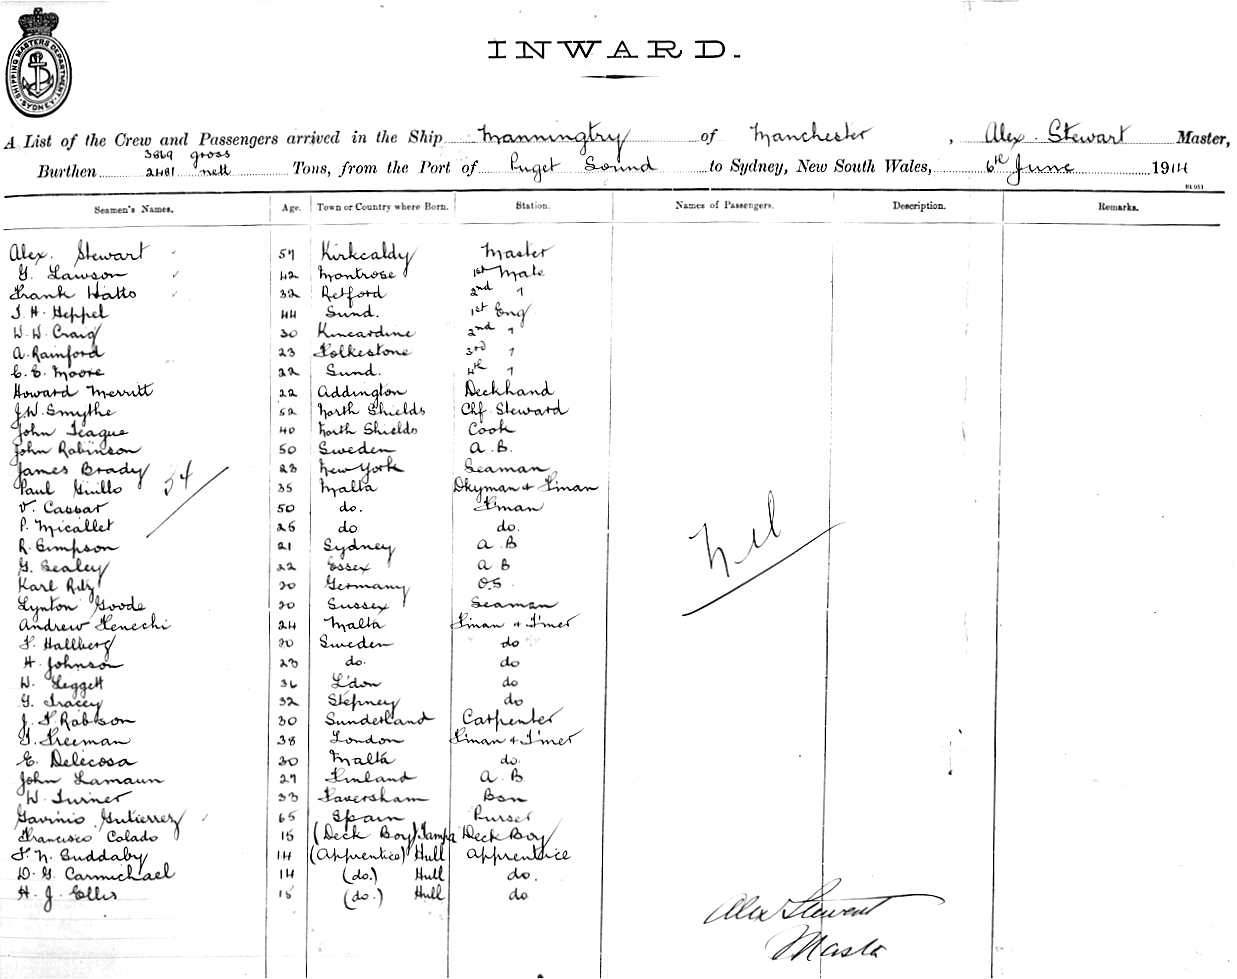 SHIPPING MASTERS DEPARTMENT
SYDNEY
INWARD.
A List of the Crew and Passengers arrived in the Ship Manningtry of Manchester, Alex. Stewart Master,
3869 gross
Burthen 2481 nett Tons, from the Port of Puget Sound to Sydney, New South Wales, 6th June 1914
Seamen's Names. Age. Town or Country where Born. Station. Names of Passengers. Description. Remarks.
Alex. Stewart 57 Kirkcaldy Master
G. Lawson 42 Montrose 1st Mate
Frank Hatto 32 Retford 2nd "
J. H. Heppel 44 Sund. 1st Eng
W. W. Craig 30 Kincardine 2nd "
A. Rainford 23 Folkestone 3rd "
C. E. Moore 22 Sund. 4th "
Howard Merritt 22 Addington Deckhand
J. W. Smythe 52 North Shields Chf Steward
John Teague 40 North Shields Cook
John Robinson 50 Sweden A.B.
James Brady 23 New York Seaman
Paul Grillo 35 Malta Dkyman & F'man
34
V. Cassar 50 do. F'man
P. Micallef 25 do do.
R. Simpson 21 Sydney A.B
G. Sealey 22 Essex A B
Karl Ritz 20 Germany O.S.
Lynton Goode 20 Sussex Seaman
Nil
Andrew Fenechi 24 Malta F'man & T'mer
F. Hallberg 20 Sweden do
H. Johnson 23 do. do
W. Leggett 36 L'don do
G. Tracey 32 Stepney do
J. F. Robson 30 Sunderland Carpenter
T. Freeman 38 London F'man & T'mer
E. Delicosa 30 Malta do.
John Lamaun 27 Finland A.B
W. Turner 33 Faversham Bsn
Gavinio Gutierrez 65 Spain Purser
Francisco Colado 15 (Deck Boy) Tampa Deck Boy
F. N. Suddaby 14 (Apprentice) Hull Apprentice
D. G. Carmichael 14 (do.) Hull do.
H. J. Ellis 15 (do.) Hull do
Alex Stewart
Master